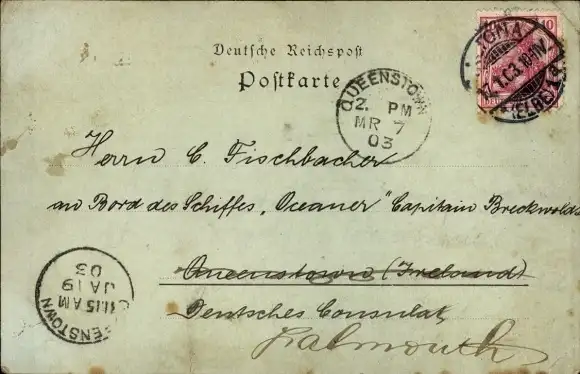 Deutsche Reichspost
Postkarte
10
ALTONA
17.1.03.10-11V.
QUEENSTOWN
2. PM
MR 7
03
Herrn C. Fischbacher
an Bord des Schiffes „Oceaner" Capitain Breckwoldt
Queenstown (Ireland)
Deutsches Consulat,
Falmouth
QUEENSTOWN
11.15 AM
JA 19
03